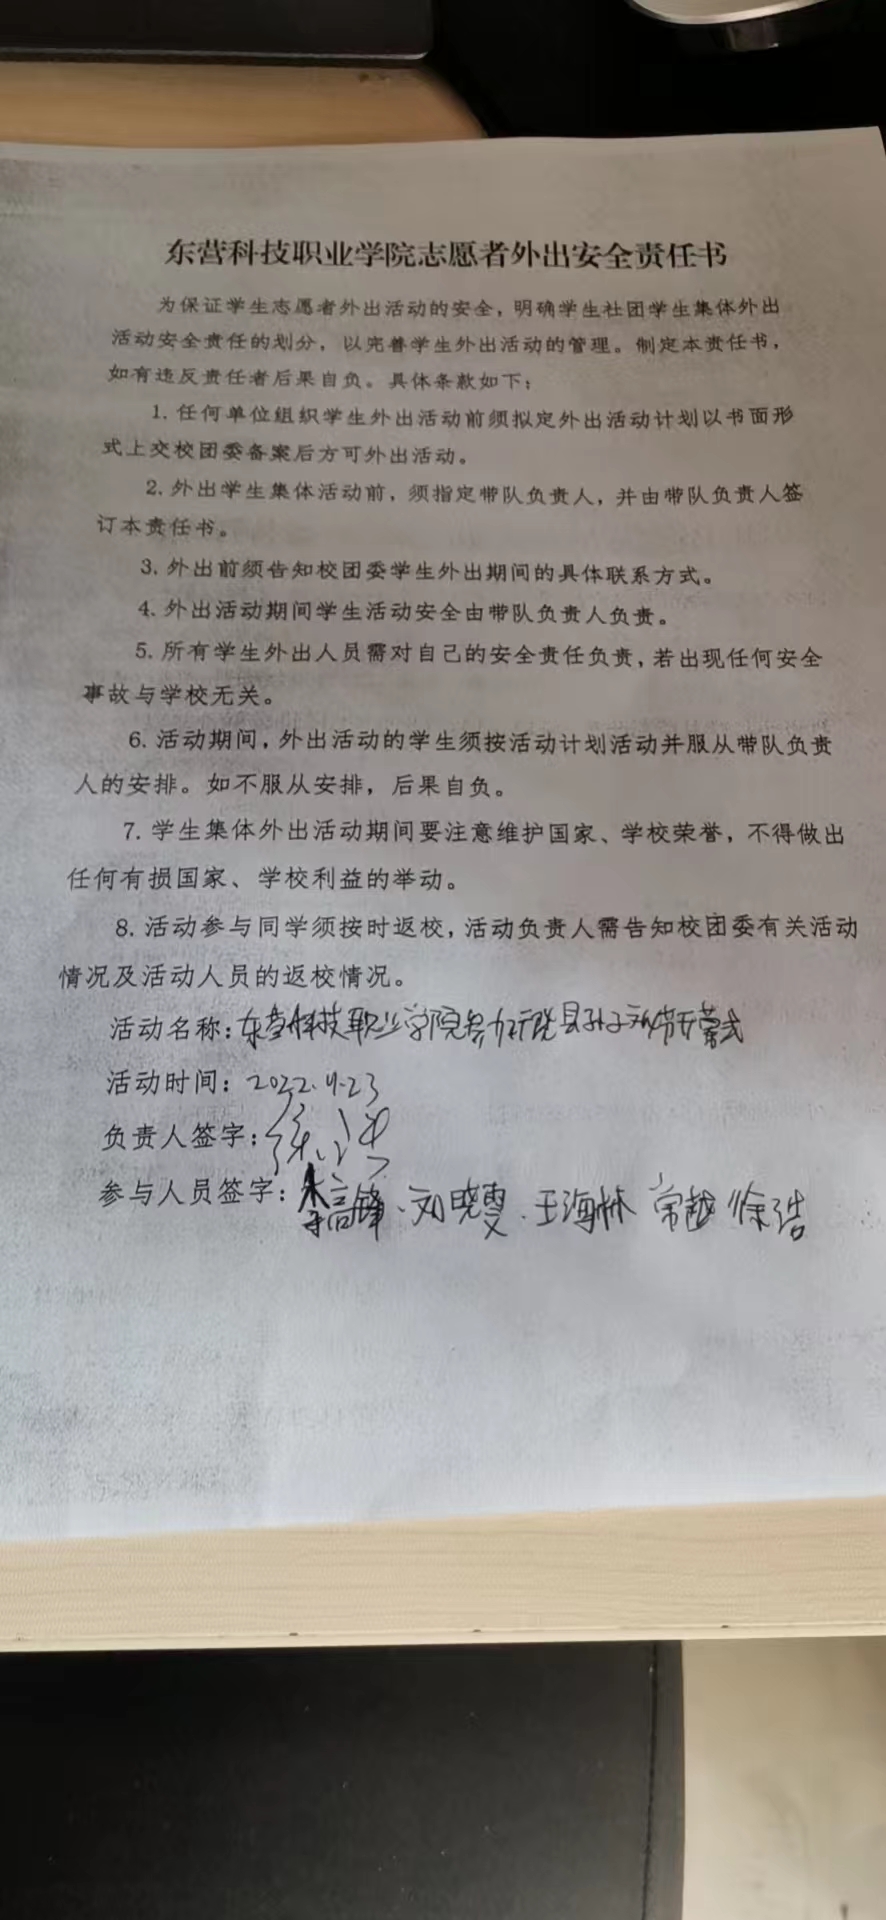 东营科技职业学院志愿者外出安全责任书
为保证学生志愿者外出活动的安全，明确学生社团学生集体外出
活动安全责任的划分，以完善学生外出活动的管理。制定本责任书，
如有违反责任者后果自负。具体条款如下：
1. 任何单位组织学生外出活动前须拟定外出活动计划以书面形
式上交校团委备案后方可外出活动。
2. 外出学生集体活动前，须指定带队负责人，并由带队负责人签
订本责任书。
3. 外出前须告知校团委学生外出期间的具体联系方式。
4. 外出活动期间学生活动安全由带队负责人负责。
5. 所有学生外出人员需对自己的安全责任负责，若出现任何安全
事故与学校无关。
6. 活动期间，外出活动的学生须按活动计划活动并服从带队负责
人的安排。如不服从安排，后果自负。
7. 学生集体外出活动期间要注意维护国家、学校荣誉，不得做出
任何有损国家、学校利益的举动。
8. 活动参与同学须按时返校，活动负责人需告知校团委有关活动
情况及活动人员的返校情况。
活动名称：东营科技职业学院参加 县孙子文 开幕式
活动时间：2022.4.23
负责人签字：
参与人员签字：李高锋.刘晓雯.王海林 常越 徐浩